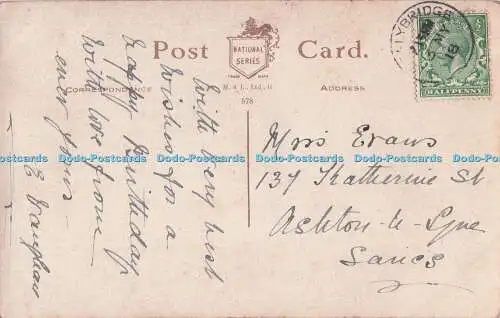 Post Card.
NATIONAL
SERIES
TRADE MARK
CORRESPONDENCE
M. & L., Ltd.,
ADDRESS
578
With very best
wishes for a
happy Birthday
With love from
ever yours
E
Miss Evans
137 Katherine St
Ashton-u-Lyne
Lancs
HALFPENNY
18
Dodo-Postcards Dodo-Postcards Dodo-Postcards Dodo-Postcards Dodo-Postcards